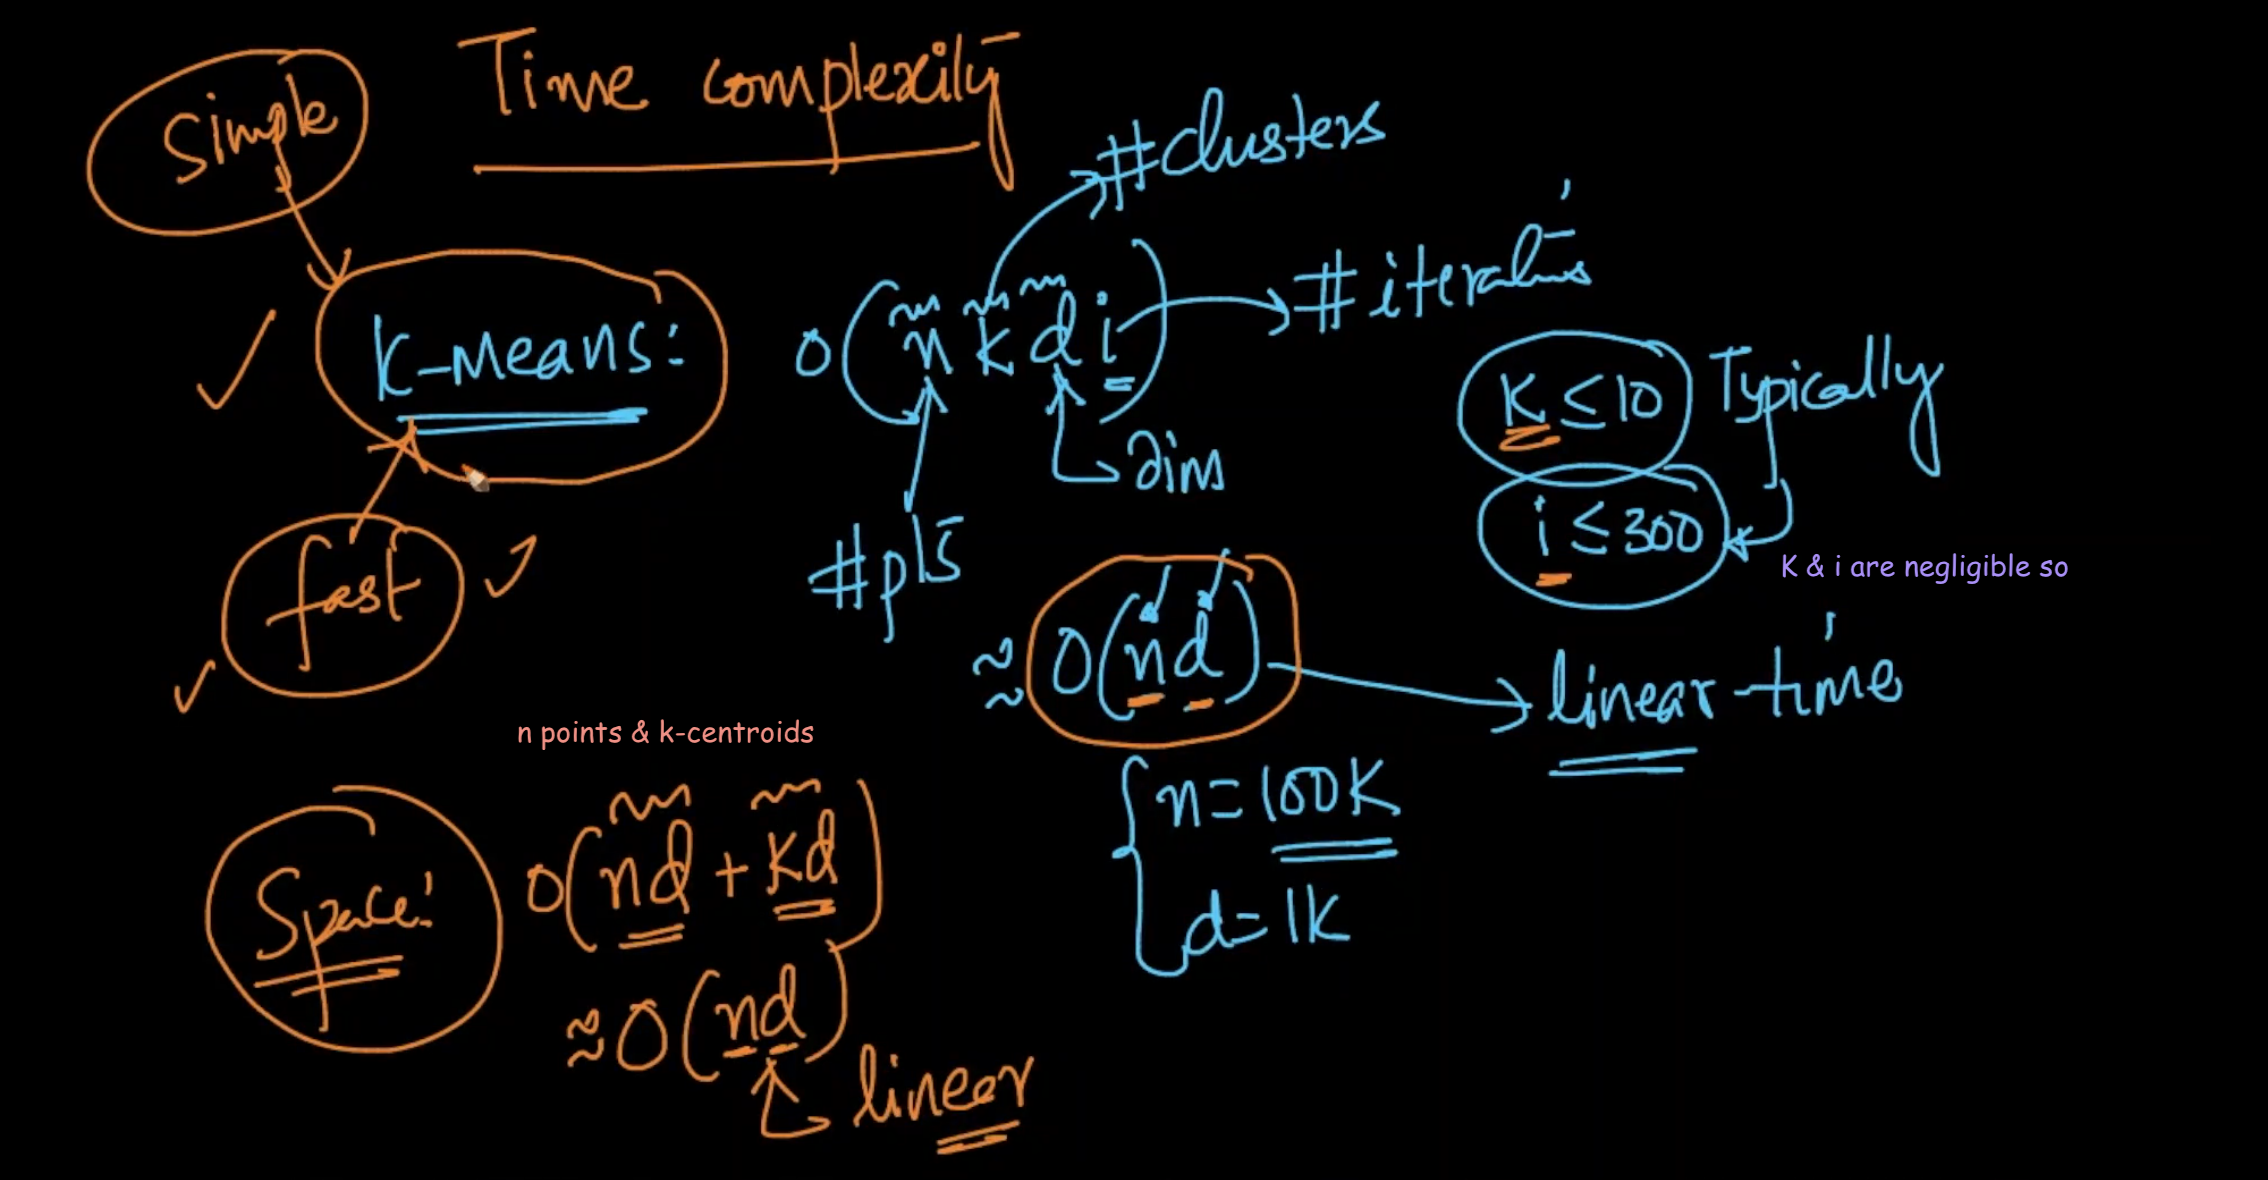 Time complexity
Simple
#clusters
k-means: O(nkdi)
#iterations
dim
#pts
K ≤ 10 Typically
i ≤ 300
K & i are negligible so
fast
≈ O(nd)
linear-time
n = 100K
d = 1K
n points & k-centroids
Space: O(nd + kd)
≈ O(nd)
linear